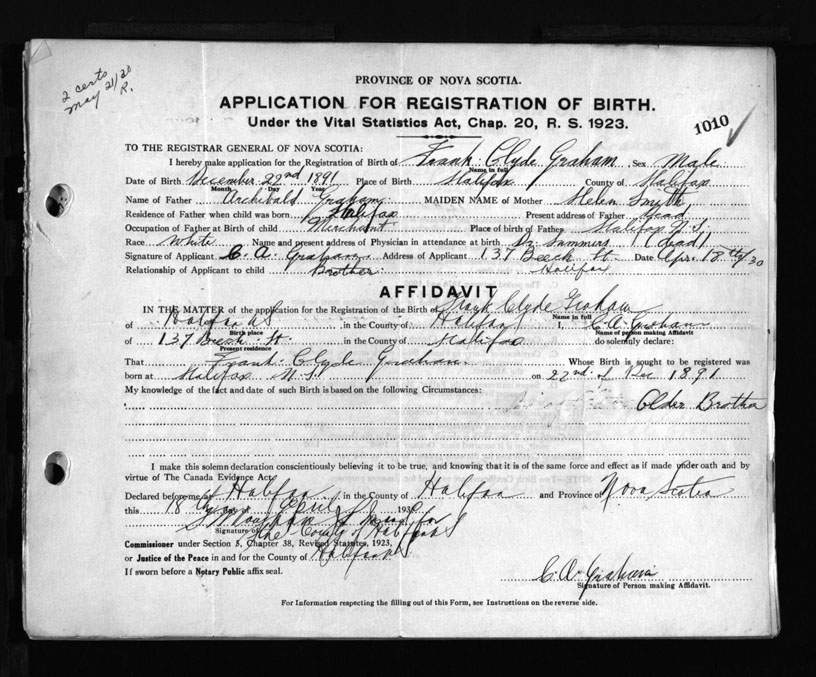 2 certs
May 21/30
R.
PROVINCE OF NOVA SCOTIA.
APPLICATION FOR REGISTRATION OF BIRTH.
Under the Vital Statistics Act, Chap. 20, R. S. 1923.
1010
TO THE REGISTRAR GENERAL OF NOVA SCOTIA:
I hereby make application for the Registration of Birth of Frank Clyde Graham Sex Male
Name in full
Date of Birth December 22nd 1891 Place of Birth Halifax County of Halifax
Month Day Year
Name of Father Archibald Graham MAIDEN NAME of Mother Helen Smyth
Residence of Father when child was born Halifax Present address of Father dead
Occupation of Father at Birth of child Merchant Place of birth of Father Halifax N.S.
Race White Name and present address of Physician in attendance at birth Dr. Summers (dead)
Signature of Applicant C. A. Graham Address of Applicant 137 Beech St. Date Apr. 18th/30
Relationship of Applicant to child Brother Halifax
AFFIDAVIT
IN THE MATTER of the application for the Registration of the Birth of Frank Clyde Graham
Name in full
of Halifax NS in the County of Halifax I C. A. Graham
Birth place Name of person making Affidavit
of 137 Beech St. in the County of Halifax do solemnly declare:
Present residence
That Frank Clyde Graham Whose Birth is sought to be registered was
born at Halifax N.S. on 22nd of Dec 1891
My knowledge of the fact and date of such Birth is based on the following Circumstances:
Older Brother
I make this solemn declaration conscientiously believing it to be true, and knowing that it is of the same force and effect as if made under oath and by
virtue of The Canada Evidence Act.
Declared before me at Halifax in the County of Halifax and Province of Nova Scotia
this 18 day of April 1930
for
Signature of the County of Halifax
Commissioner under Section 5, Chapter 38, Revised Statutes, 1923,
or Justice of the Peace in and for the County of Halifax
If sworn before a Notary Public affix seal.
C. A. Graham
Signature of Person making Affidavit.
For Information respecting the filling out of this Form, see Instructions on the reverse side.